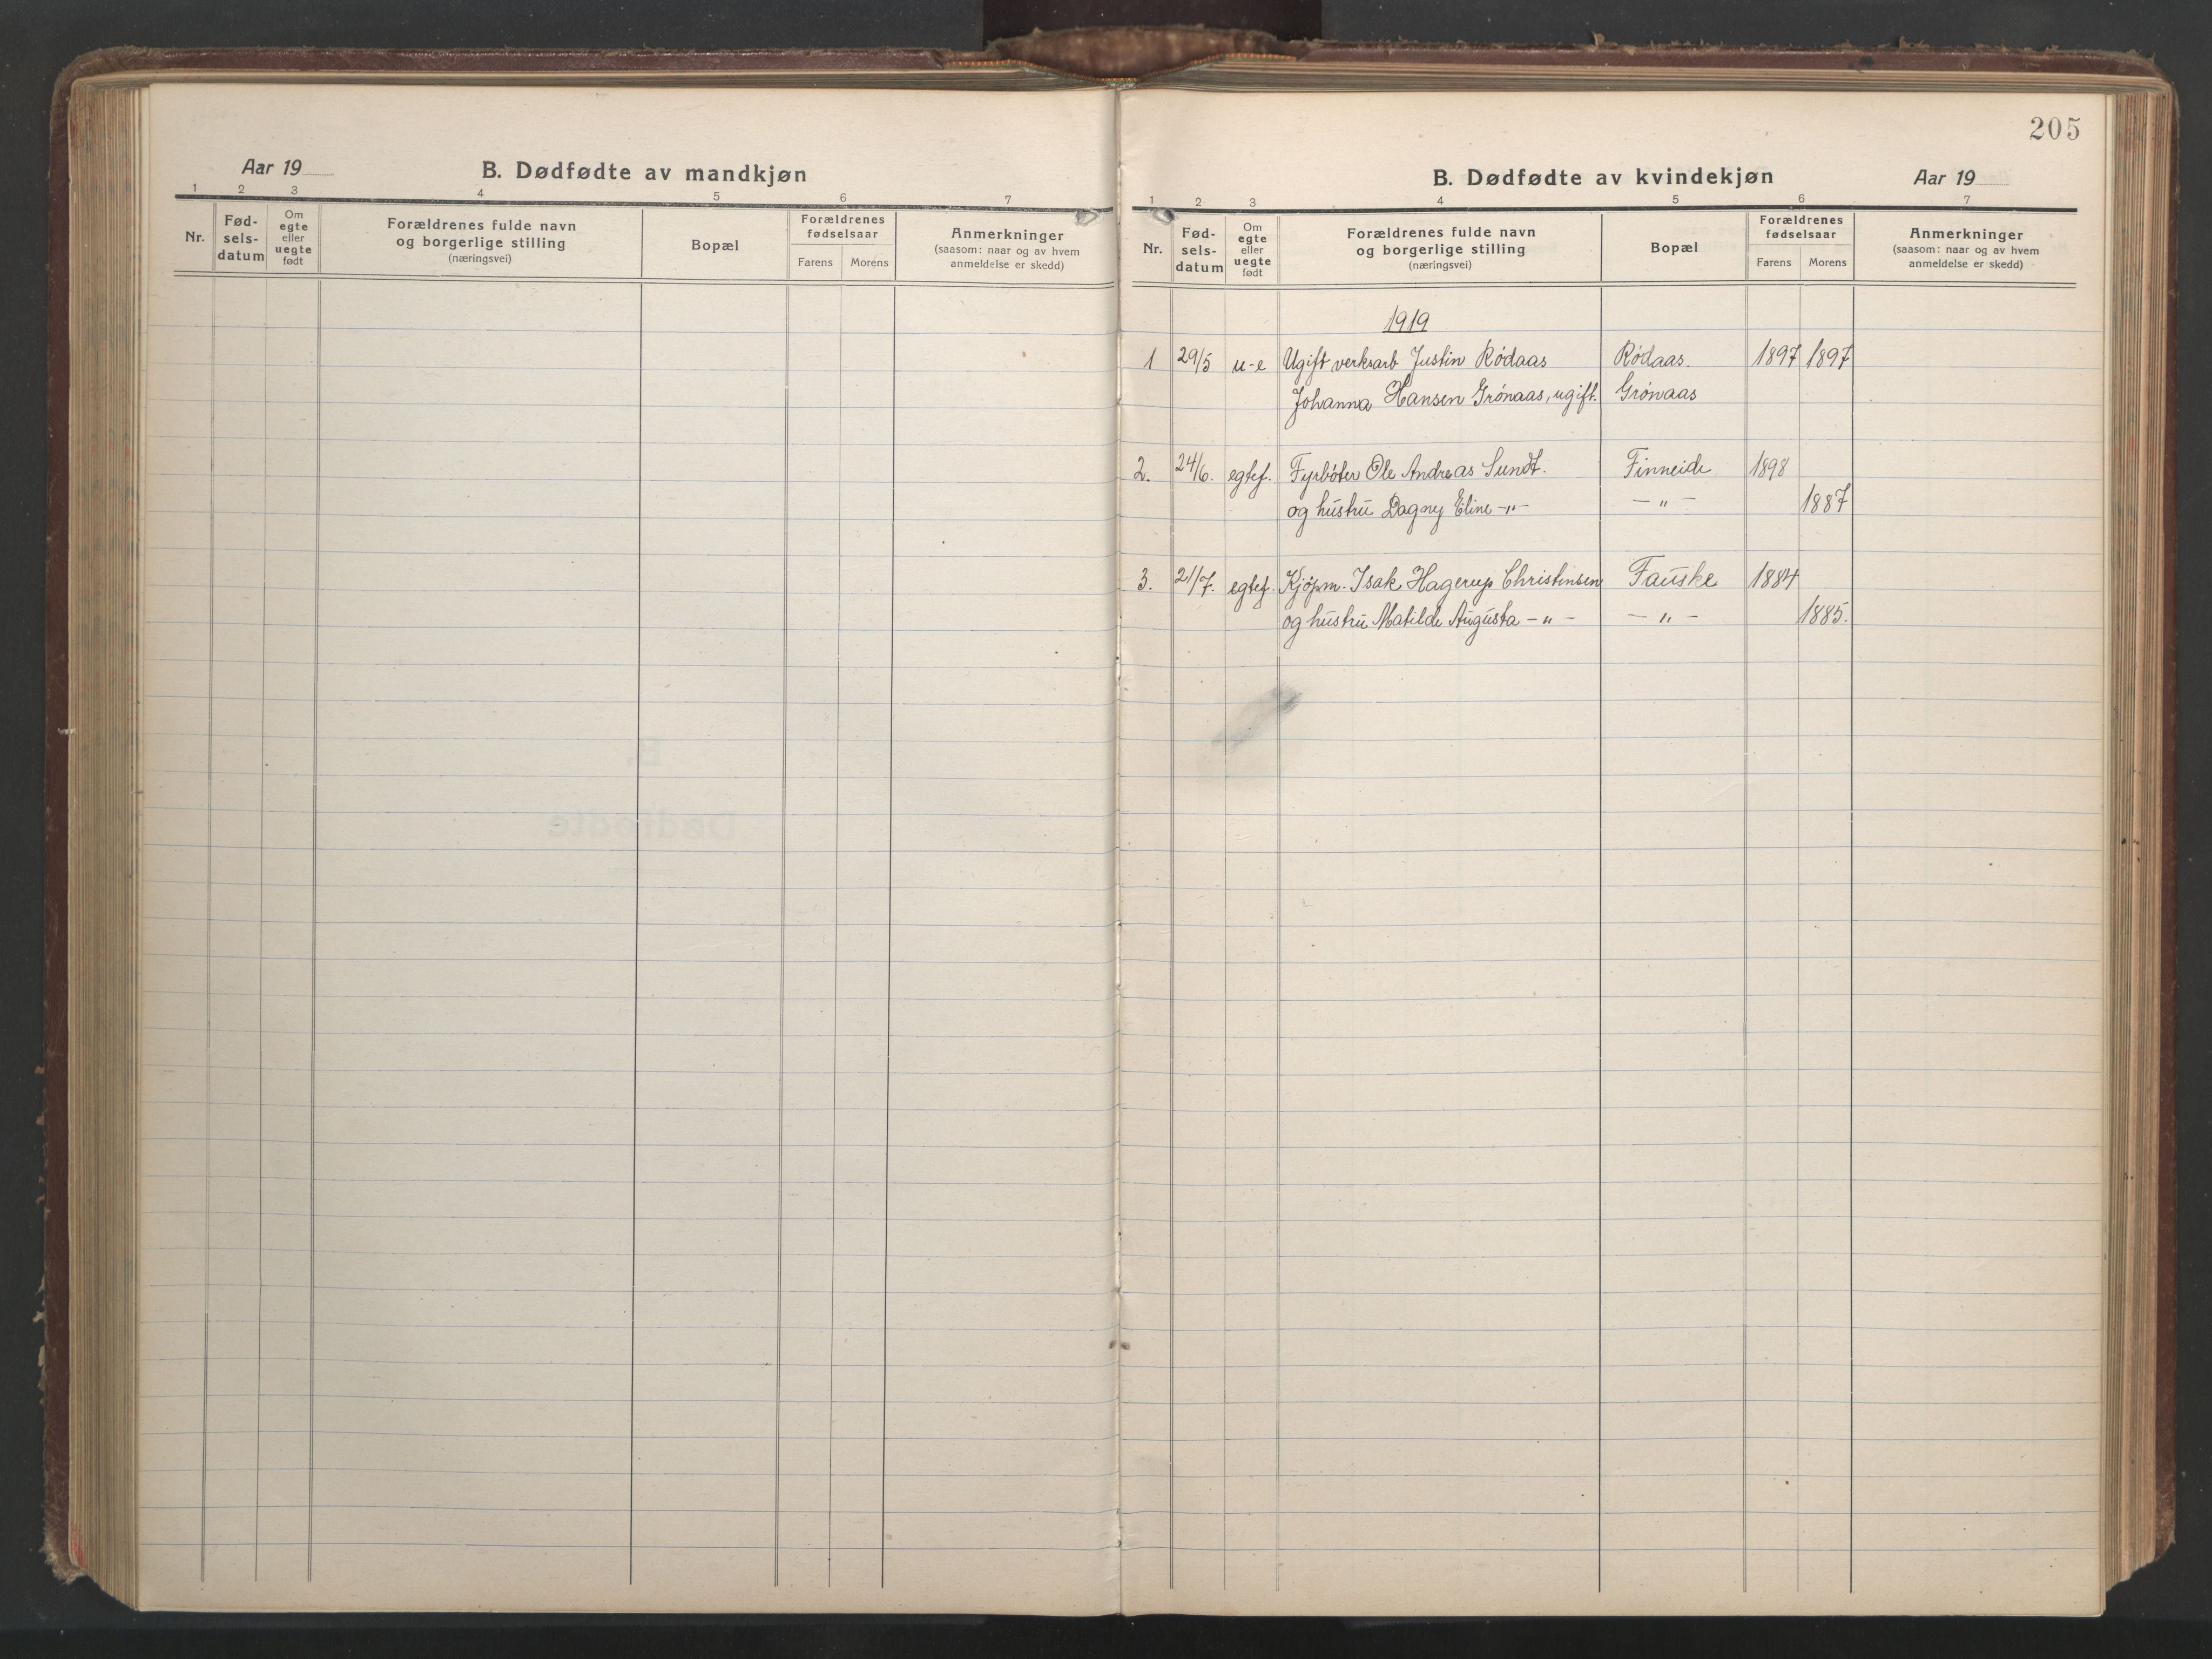 Aar 19
B. Dødfødte av mandkjøn
1 2 3 4 5 6 7
Nr.
Fød-
sels-
datum
Om
egte
eller
uegte
født
Forældrenes fulde navn
og borgerlige stilling
(næringsvei)
Bopæl
Forældrenes
fødselsaar
Farens Morens
Anmerkninger
(saasom: naar og av hvem
anmeldelse er skedd)
205
B. Dødfødte av kvindekjøn
Aar 19
1 2 3 4 5 6 7
Nr.
Fød-
sels-
datum
Om
egte
eller
uegte
født
Forældrenes fulde navn
og borgerlige stilling
(næringsvei)
Bopæl
Forældrenes
fødselsaar
Farens Morens
Anmerkninger
(saasom: naar og av hvem
anmeldelse er skedd)
1919
1 29/5 u-e Ugift verksarb Justin Rödaas Rödaas. 1897 1897
Johanna Hansen Grönaas, ugift. Grönaas
2. 24/6. egtef. Fyrböter Ole Andreas Sundt. Finneide 1898
og hustru Dagny Eline -"- -"- 1887
3. 21/7. egtef. Kjöpm. Isak Hagerup Christensen Fauske 1884
og hustru Matilde Augusta -"- -"- 1885.